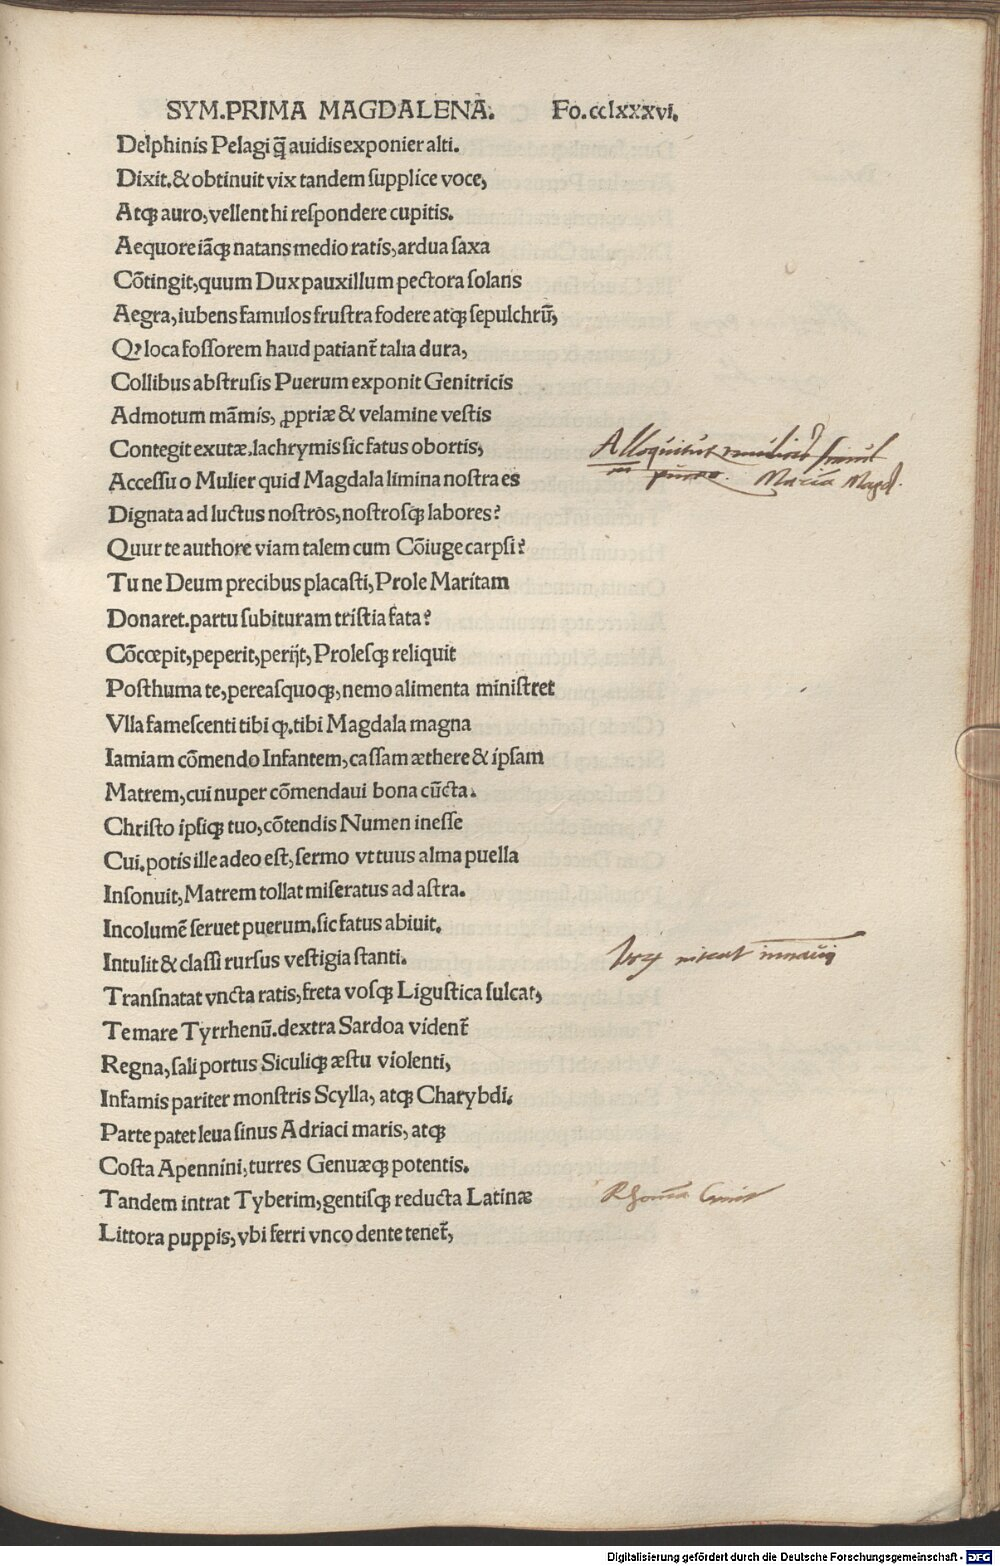 SYM.PRIMA MAGDALENA. Fo.cclxxxvi.
Delphinis Pelagi q̃ auidis exponier alti.
Dixit.& obtinuit vix tandem ſupplice voce,
Atqꝫ auro, vellent hi reſpondere cupitis.
Aequore iãqꝫ natans medio ratis, ardua ſaxa
Cõtingit, quum Dux pauxillum pectora ſolans
Aegra, iubens famulos fruſtra fodere atqꝫ ſepulchrũ,
Qꝫ loca foſſorem haud patiant᷑ talia dura,
Collibus abſtruſis Puerum exponit Genitricis
Admotum mãmis, ꝓpriæ & velamine veſtis
Contegit exutæ.lachrymis ſic fatus obortis,
Alloquitur mulierem simul
Acceſſu o Mulier quid Magdala limina noſtra es
Maria Magd.
Dignata ad luctus noſtros, noſtroſqꝫ labores?
Quur te authore viam talem cum Cõiuge carpſi?
Tu ne Deum precibus placaſti, Prole Maritam
Donaret.partu ſubituram triſtia fata?
Cõcœpit, peperit, perijt, Proleſqꝫ reliquit
Poſthuma te, pereas quoqꝫ, nemo alimenta miniſtret
Vlla fameſcenti tibi qꝫ.tibi Magdala magna
Iamiam cõmendo Infantem, caſſam æthere & ipſam
Matrem, cui nuper cõmendaui bona cũcta.
Chriſto ipſiqꝫ tuo, cõtendis Numen ineſſe
Cui.potis ille adeo eſt, ſermo vt tuus alma puella
Inſonuit, Matrem tollat miſeratus ad aſtra.
Incolumẽ ſeruet puerum.ſic fatus abiuit.
Intulit & claſſi rurſus veſtigia ſtanti.
Tranſnatat vncta ratis, freta voſqꝫ Liguſtica ſulcat,
Te mare Tyrrhenũ.dextra Sardoa vident᷑
Regna, ſali portus Siculiqꝫ æſtu violenti,
Infamis pariter monſtris Scylla, atqꝫ Charybdi.
Parte patet leua ſinus Adriaci maris, atqꝫ
Coſta Apennini, turres Genuæqꝫ potentis.
Tandem intrat Tyberim, gentiſqꝫ reducta Latinæ
Littora puppis, vbi ferri vnco dente tenet᷑,
Digitalisierung gefördert durch die Deutsche Forschungsgemeinschaft - DFG